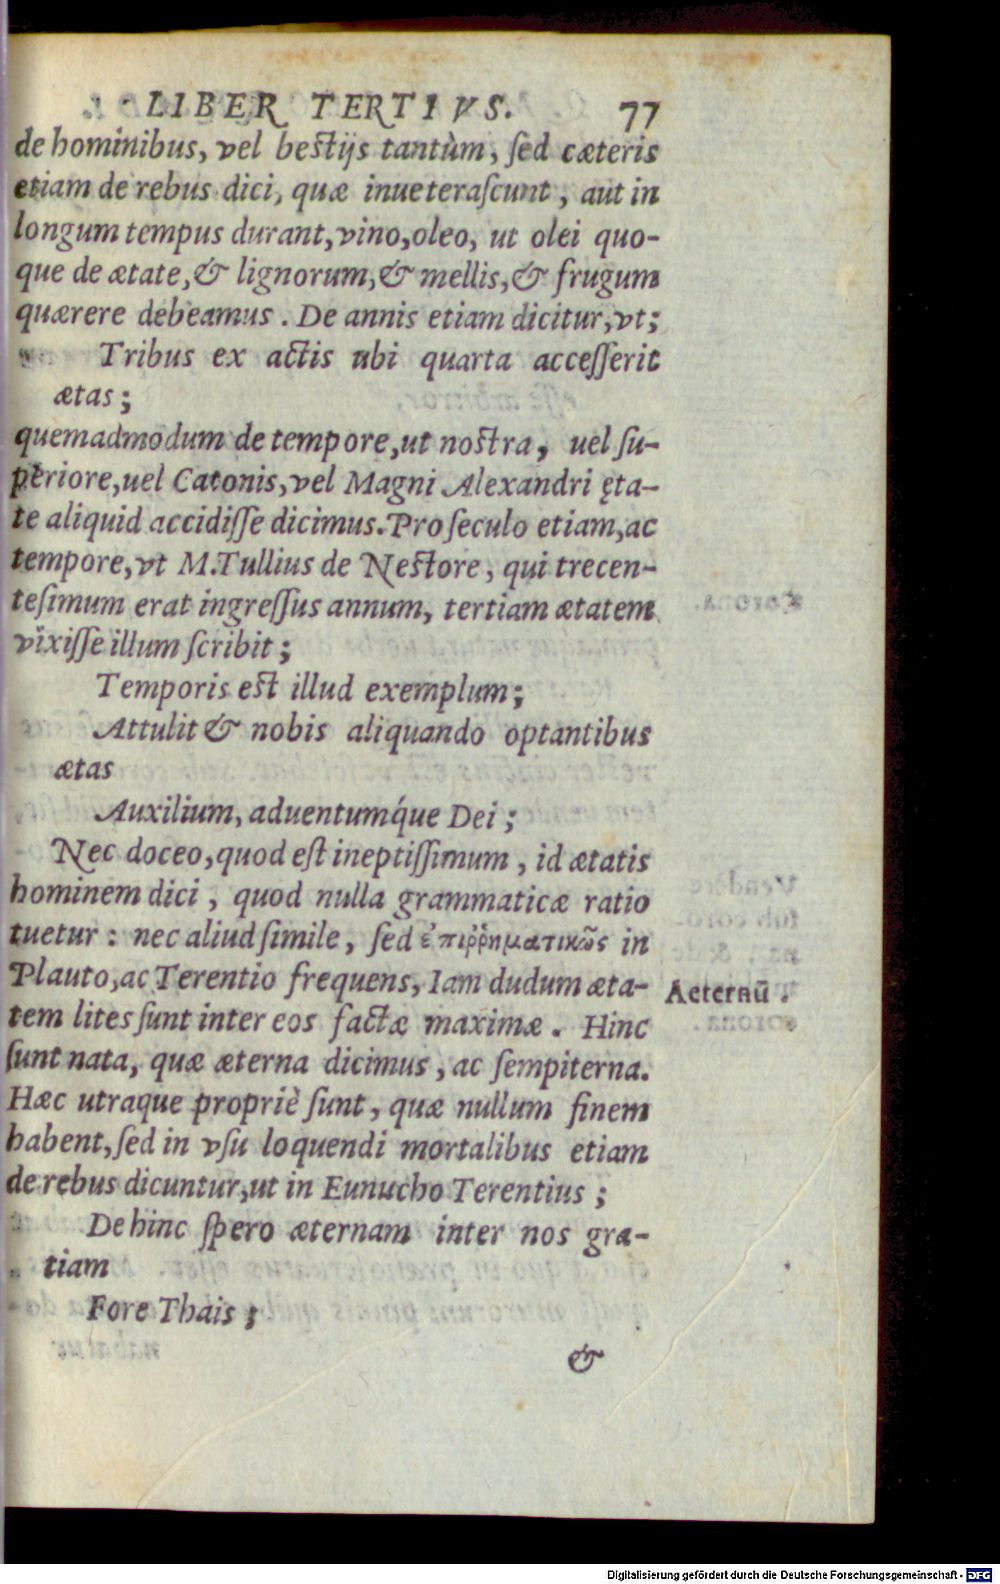 LIBER TERTIVS. 77
de hominibus, vel bestijs tantùm, sed cæteris
etiam de rebus dici, quæ inueterascunt, aut in
longum tempus durant, vino, oleo, ut olei quo-
que de ætate, & lignorum, & mellis, & frugum
quærere debeamus. De annis etiam dicitur, vt;
Tribus ex actis ubi quarta accesserit
ætas;
quemadmodum de tempore, ut nostra, uel su-
periore, uel Catonis, vel Magni Alexandri ęta-
te aliquid accidisse dicimus. Pro seculo etiam, ac
tempore, vt M. Tullius de Nestore, qui trecen-
tesimum erat ingressus annum, tertiam ætatem
vixisse illum scribit;
Temporis est illud exemplum;
Attulit & nobis aliquando optantibus
ætas
Auxilium, aduentumq́ue Dei;
Nec doceo, quod est ineptissimum, id ætatis
hominem dici, quod nulla grammaticæ ratio
tuetur: nec aliud simile, sed ἐπιῤῥηματικῶς in
Plauto, ac Terentio frequens, Iam dudum æta-
tem lites sunt inter eos factæ maximæ. Hinc
sunt nata, quæ æterna dicimus, ac sempiterna.
Hæc utraque propriè sunt, quæ nullum finem
habent, sed in vsu loquendi mortalibus etiam
de rebus dicuntur, ut in Eunucho Terentius;
Dehinc spero æternam inter nos gra-
tiam
Fore Thais;
&
Aeternū.
Digitalisierung gefördert durch die Deutsche Forschungsgemeinschaft - DFG